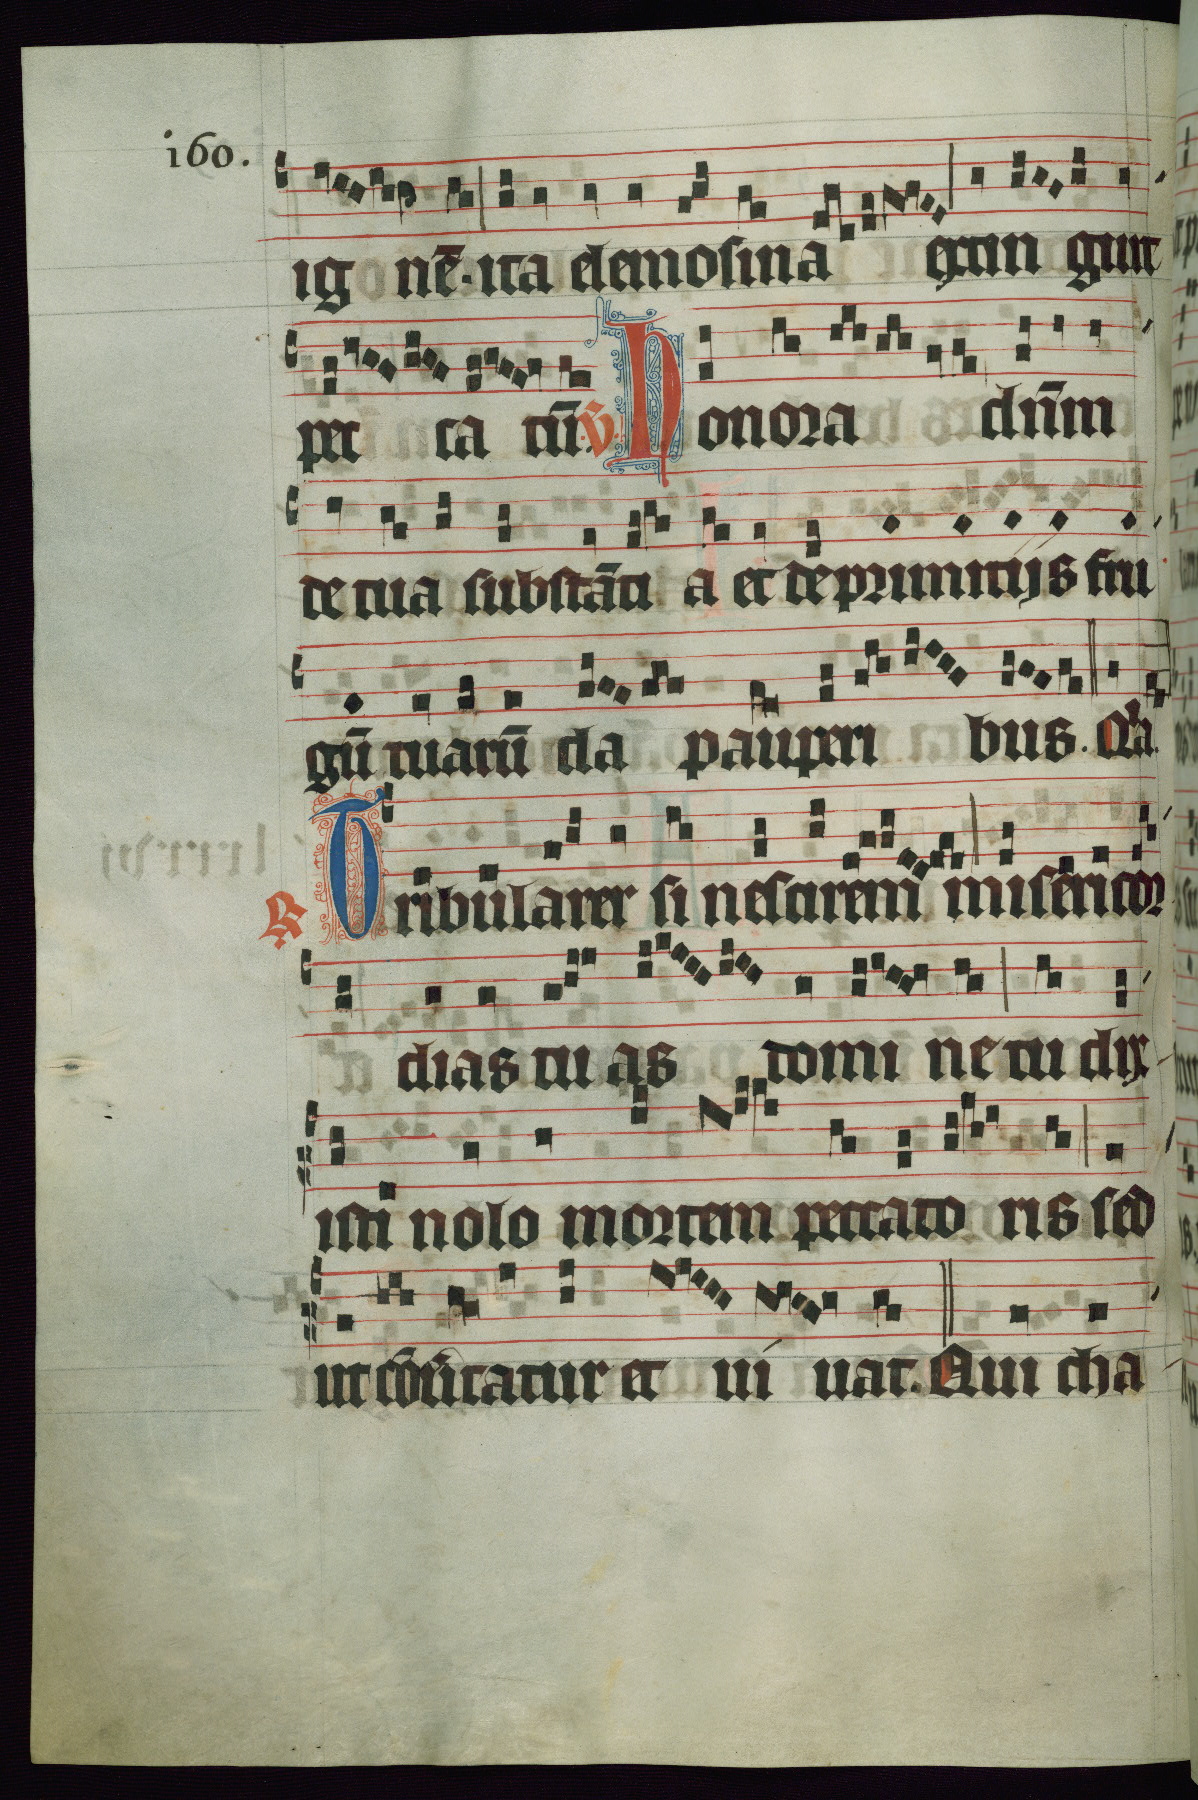 i60.
ig nē. ita elemosina extin guit
pec ca tū. V. Honora dn̄m
de tua substāti a et de primitijs fru
gū tuarū da pauperi bus. Q̄a.
R Tribularer si nescirem misericor
dias tu as domi ne tu dix
isti nolo mortem peccato ris sed
ut cōūtatur et ui uat. Qui cha